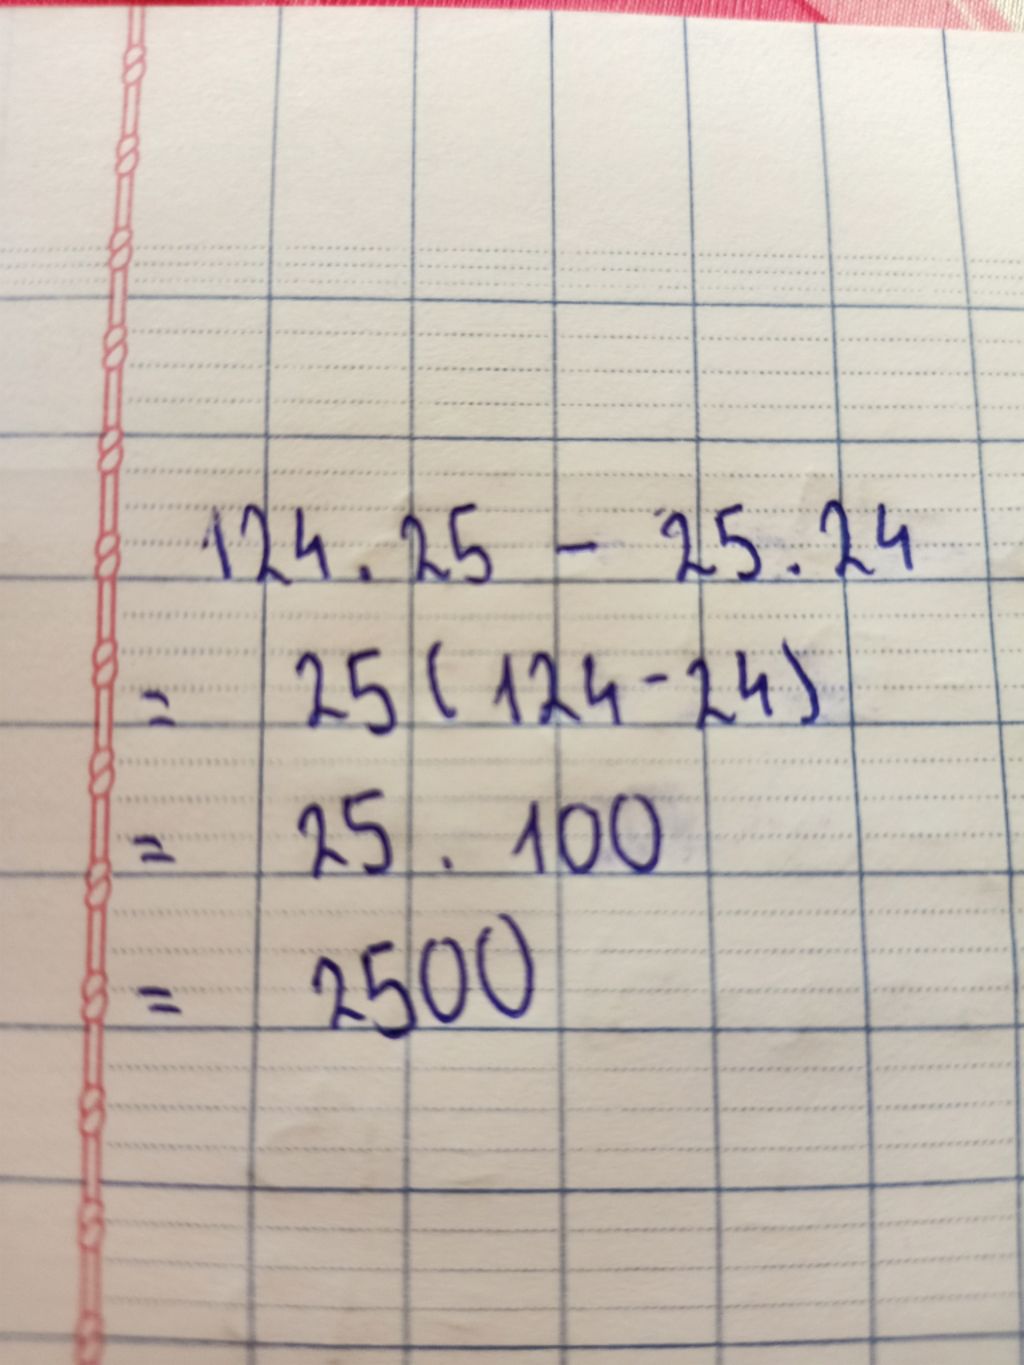 124.25 - 25.24
= 25(124-24)
= 25 . 100
= 2500